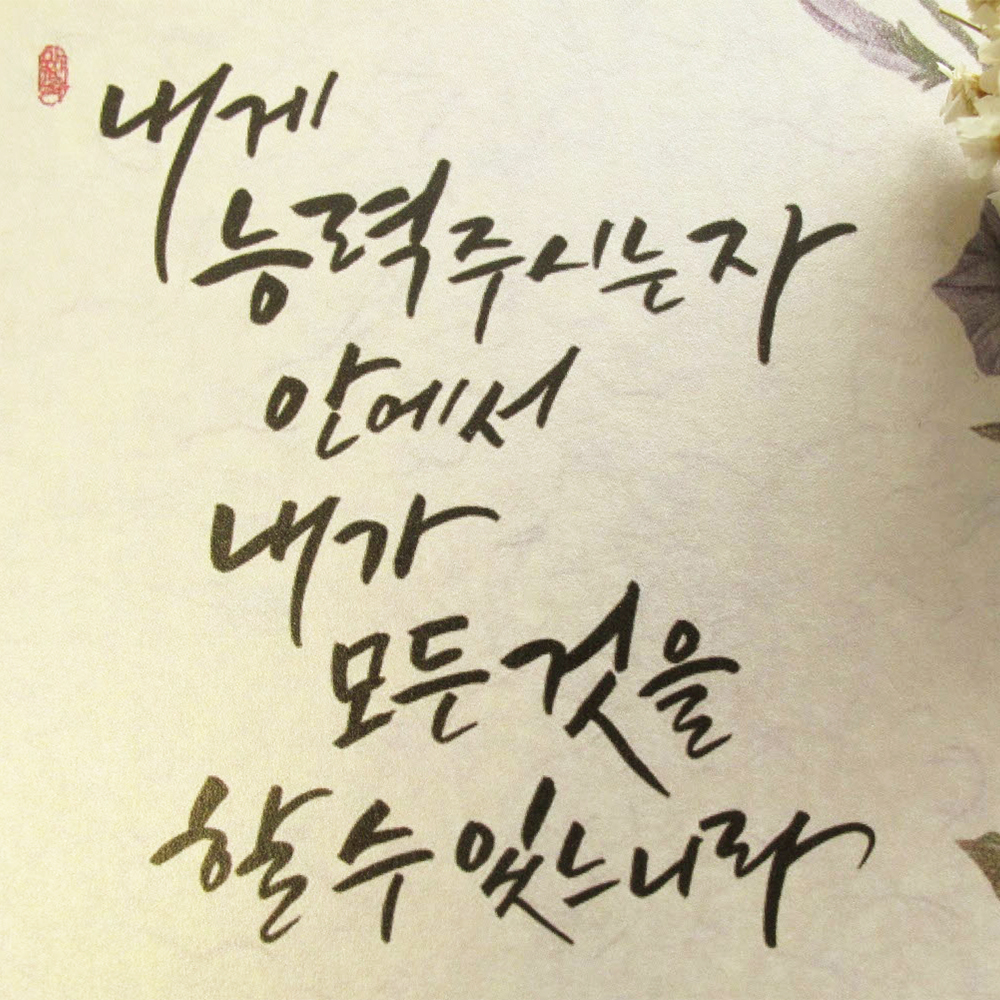 내게
능력 주시는 자
안에서
내가
모든 것을
할 수 있느니라